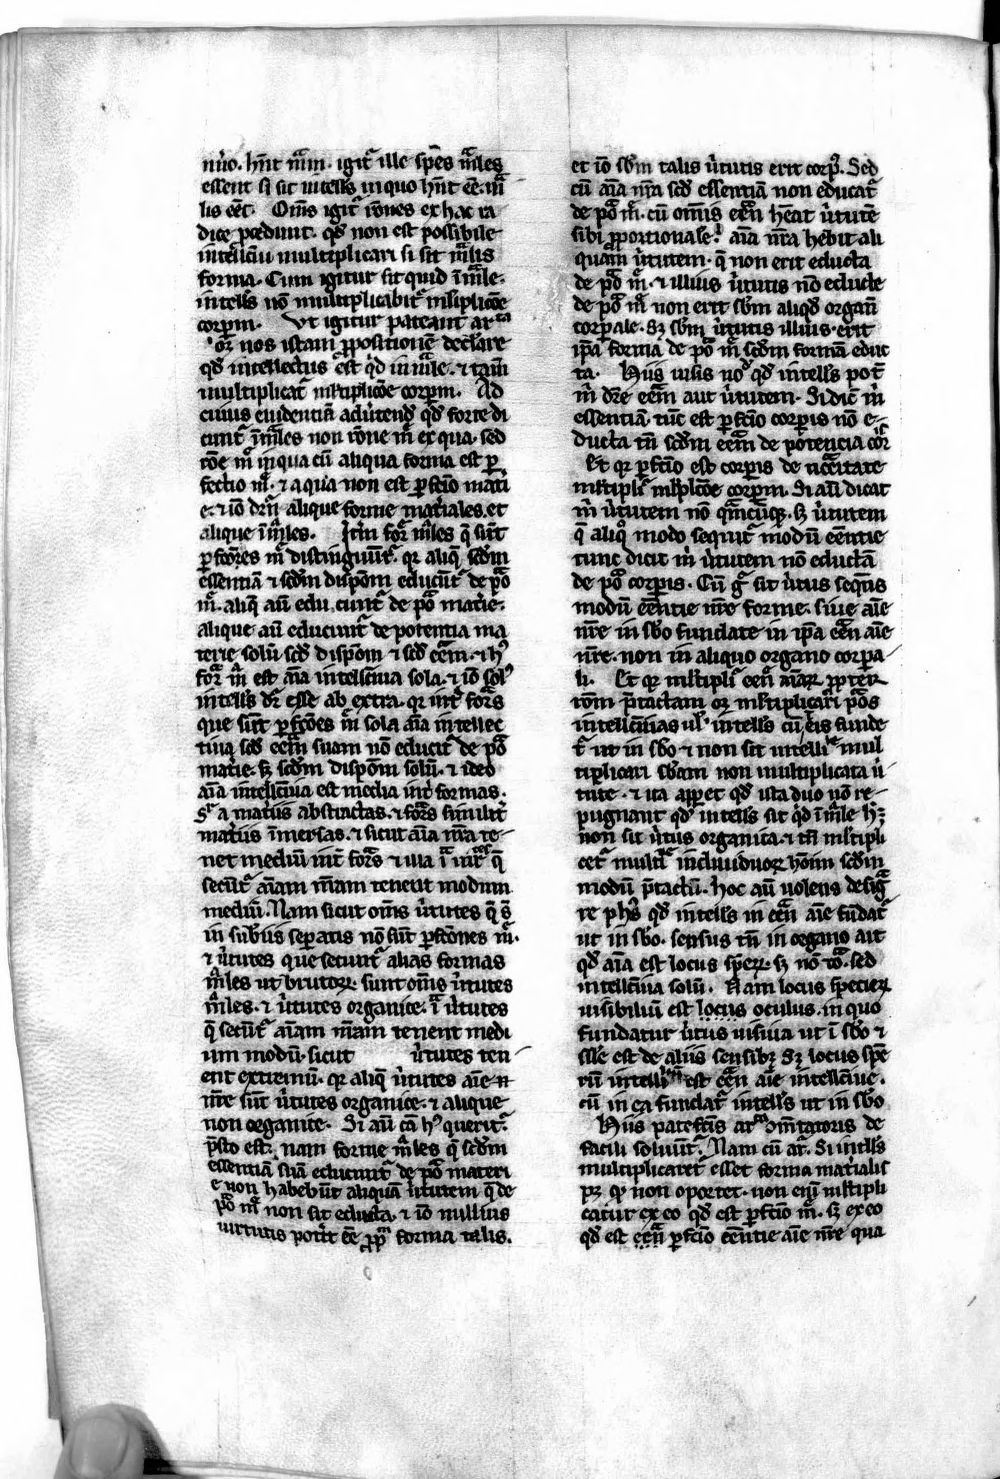 nīo. hn̄t mām. igit᷑ ille spēs māles
essent si sit intell̄s in quo hn̄t eē. mā
lis eēt. Om̄s igit᷑ rōnes ex hac ra
dice p̄cedunt. qd̄ non est possibile
intellc̄m multiplicari si sit mālis
forma. Cum igitur sit quid īmāle.
intell̄s nō multiplicabit᷑ mltiplicōe
corpm̄. Vt igitur pateant ar^ta
or᷑ nos istam ꝓpositionē declare
qd̄ intellectus est qd̄ īmāle. ⁊ tam̄
multiplicat᷑ mltiplicōe corpm̄. Ad
cuius euidentiā aduertend̄ qd̄ forte di
cunt᷑ īmāles non rōne m̄ ex qua. sed
rōe m̄ in qua cū aliqua forma est ꝑ
fectio m̄. ⁊ a qua non est ꝑfctio mati
e. ⁊ iō dn̄r alique forme mat̄iales. et
alique īmāles. Itm̄ for᷑ māles q̄ sūt
ꝑfcōnes m̄ distinguūt᷑. qr aliq̄ scd̄m
essentiā ⁊ scd̄m dispōm educūt᷑ de pōa
m̄. aliq̄ aū educunt᷑ de pōa mat̄ie.
alique aū educunt᷑ de potentia ma
terie solū scd̄ dispōm ⁊ scd̄ eēm. ⁊ hꝰ
for᷑ m̄ est āia intellc̄iua sola. ⁊ iō solꝰ
intell̄s dr̄ esse ab extra. qr int̄ for̄s
que sūt ꝑfcōes m̄ sola āia intellec
tiua scd̄ eēm suam nō educit᷑ de pōa
mat̄ie. sꝫ scd̄m dispōm solū. ⁊ ideo
āia intellc̄iua est media int̄ formas.
a mat̄iis abstractas. ⁊ for̄s similit̄
mat̄iis īmersas. ⁊ sicut āia nr̄a te-
net mediū int̄ for̄s ⁊ illa
secūt᷑ āiam nr̄am tenent modum
mediū. Nam sicut om̄s v̄tutes q̄ s̄
in sub̄iis sepatis nō sūt ꝑfcōnes m̄.
⁊ v̄tutes que secunt᷑ alias formas
māles ut brutoꝝ. sunt om̄s v̄tutes
māles. ⁊ v̄tutes organice. īa v̄tutes
q̄ secūt᷑ āiam nr̄am tenent medi
um modū. sicut v̄tutes ten-
ent extremū. qr aliq̄ v̄tutes āie n
nr̄e sūt v̄tutes organice. ⁊ alique
non organice. Si aū cā hꝰ querit᷑.
p̄sto est. nam forme māles q̄ scd̄m
essentiā suā educunt᷑ de pōa materi
e non habebūt aliquā v̄tutem q̄ de
pōa m̄ non sit educta. ⁊ iō nullius
virtutis potit eē ꝓp̄a forma talis.
et iō sb̄m talis v̄tutis erit corpꝰ. Sed
cū āia nr̄a scd̄ essentiā non educat᷑
de pōa m̄. cū om̄is eēn heat v̄tutē
sibi ꝓportionale. āia nr̄a hēbit ali
quam v̄tutem. q̄ non erit educta
de pōa m̄. ⁊ illius v̄tutis nō educte
de pōa m̄ non erit sb̄m aliqd̄ organū
corpale. sꝫ sb̄m v̄tutis illius. erit
ip̄a forma de pōa m̄ scd̄m formā educ
ta. Hiis uisis no qd̄ intell̄s pot̄
m̄ dr̄e eēm aut v̄tutem. Si dic̄ m̄
essentiā. tūc est ꝑfcīo corpis nō e-
ducta tn̄ scd̄m eēm de potencia cor̄
Et qr ꝑfcīo est corpis de nēcitate
mltipli᷑ mltiplicōe corpm̄. Si aū dicat
m̄ v̄tutem nō qm̄cūqꝫ. sꝫ v̄tutem
q̄ aliqͦ modo sequit᷑ modū eēntie
tunc dicit m̄ v̄tutem nō eductā
de pōa corpis. Cū g̊ sit v̄tus seqn̄s
modū eēntie nr̄e forme. siue āie
nr̄e in sb̄o fundate in ip̄a eēn āie
nr̄e. non in aliquo organo corpa-
li. Et qr mltipli᷑ eēn āiaꝝ ꝓpter
rōm p̄tactam or᷑ mltiplicari pōas
intellc̄iuas ul̄ intell̄s cū eis funde
t᷑ ut in sb̄o ⁊ non sit intelli mul
tiplicari sb̄am non multiplicata v̄
tute. ⁊ ita app̄et qd̄ ista duo nō re-
pugnant qd̄ intell̄s sit qd̄ īmāle hꝫ
non sit v̄tus organica. ⁊ tn̄ mltipli
cet᷑ individuoꝝ hōim scd̄m
modū p̄tactū. hoc aū uolens desig
re ph̄s qd̄ intell̄s in eēn āie fūdat᷑
ut in sb̄o. sensus tn̄ in organo ait
qd̄ āia est locus spēꝝ. sꝫ nō tōa. sed
intellc̄iua solū. Nam locus specieꝝ
uisibiliū est locus oculus. in quo
fundatur v̄tus uisiua ut ī sb̄o ⁊
sil̄e est de aliis sensibꝫ Sꝫ locus spē
rū est eēn āie intellc̄iue.
cū in ea fundat᷑ intell̄s ut in sb̄o
Hiis patefcīs ar^ta om̄tatoris de
facili soluūt᷑. Nam cū ar᷑. Si intell̄s
multiplicaret᷑ esset forma mat̄ialis
pꝫ qͥ non oportet. non eni᷑ mltipli
catur ex eo qd̄ est ꝑfcīo m̄. sꝫ ex eo
qd̄ est eēn ꝑfcīo eēntie āie nr̄e qua